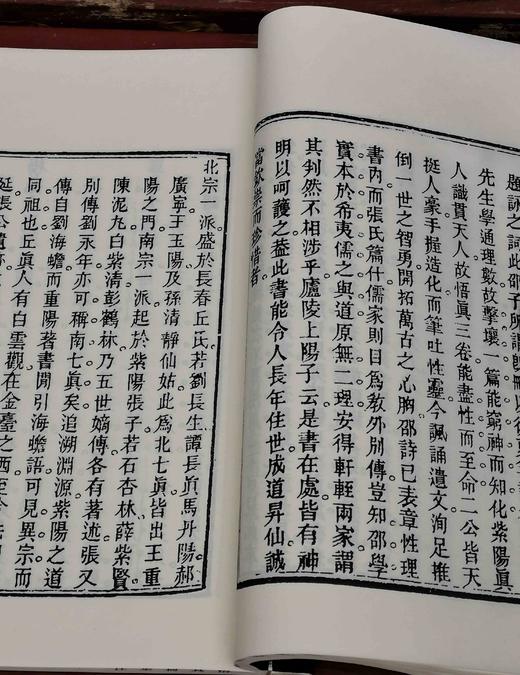 題詠之詞此邵子所謂
先生學通理數故擊壤一篇能窮神而知化紫陽眞
人識貫天人故悟眞三卷能盡性而至命二公皆天
挺人豪手握造化而筆吐性靈今諷誦遺文洵足推
倒一世之智勇開拓萬古之心胸邵詩已表章性理
書内而張氏篇什儒家則目爲教外別傳豈知邵學
實本於希夷儒之與道原無二理安得軒輊兩家謂
其判然不相涉乎廬陵上陽子云是書在處皆有神
明以呵護之葢此書能令人長年住世成道昇仙誠
當欽崇而珍惜者
北宗一派盛於長春丘氏若劉長生譚長眞馬丹陽郝
廣寧王玉陽及孫清靜仙姑此爲北七眞皆出王重
陽之門南宗一派起於紫陽張子若石杏林薛紫賢
陳泥丸白紫清彭鶴林乃五世嫡傳各有著述張又
別傳劉永年亦可稱南七眞矣追溯淵源紫陽之道
傳自劉海蟾而重陽著書閒引海蟾語可見異宗而
同祖也丘眞人有白雲觀在金臺之西至今
延張公遺